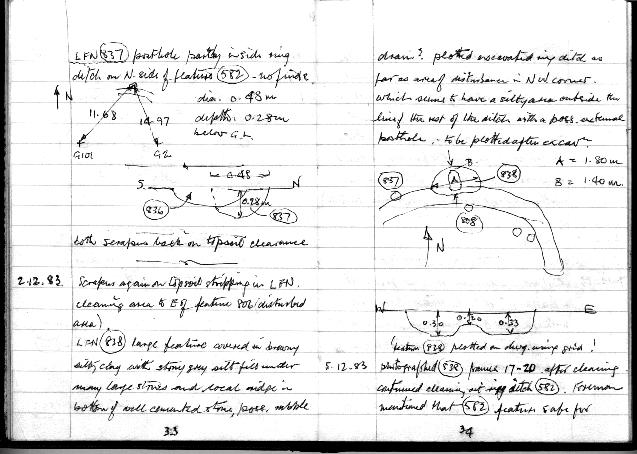 LFN (837) posthole partly inside ring
ditch on N. side of feature (582) - no finds.
↑N
dia. 0.48m
11.68
14.97
depth: 0.28m
below G.L.
G101
G2
0.48
S.
N
(836)
0.28m
(837)
both scrapers back on topsoil clearance
2.12.83
Scrapers again on topsoil stripping in LFN.
cleaning area to E of feature 802 (disturbed
area).
LFN (838) large feature covered in browny
silty clay with stony grey silt fill under
many large stones and local ridge in
bottom of well cemented stone, poss. rubble
33
drain? plotted excavated ring ditch as
far as area of disturbance in NW corner.
which seems to have a silty area outside the
line of the rest of the ditch with a poss. external
posthole. - to be plotted after excav.
B.
A = 1.80m
(837)
A
(838)
B = 1.40m.
(808)
N
W
E
0.30
0.20
0.33
feature (838) plotted on drwg. using grid!
5.12.83
photographed (838) frames 17-20 after cleaning
continued cleaning ditch (582). Foreman
mentioned that (582) feature safe for
34